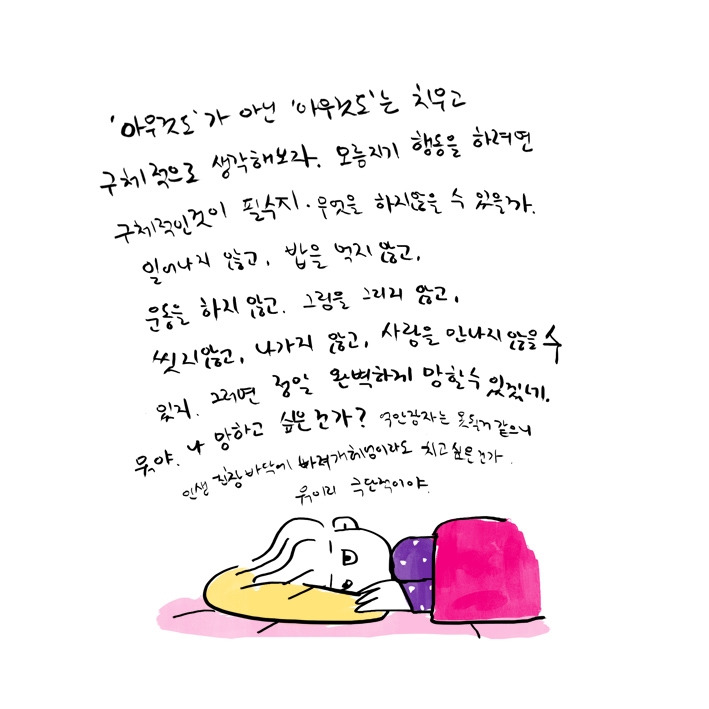 '아무것도'가 아닌 '아무것도'는 치우고
구체적으로 생각해보라. 모름지기 행동을 하려면
구체적인것이 필수지. 무엇을 하지않을 수 있을까.
일어나지 않고, 밥을 먹지 않고,
운동을 하지 않고. 그림을 그리지 않고,
씻지않고, 나가지 않고, 사람을 만나지 않을 수
있지. 그러면 정말 완벽하게 망할수 있겠네.
뭐야. 나 망하고 싶은건가? 억만장자는 못될거 같으니
인생 진창 바닥에 빠져 개헤엄이라도 치고 싶은건가.
뭐이리 극단적이야.